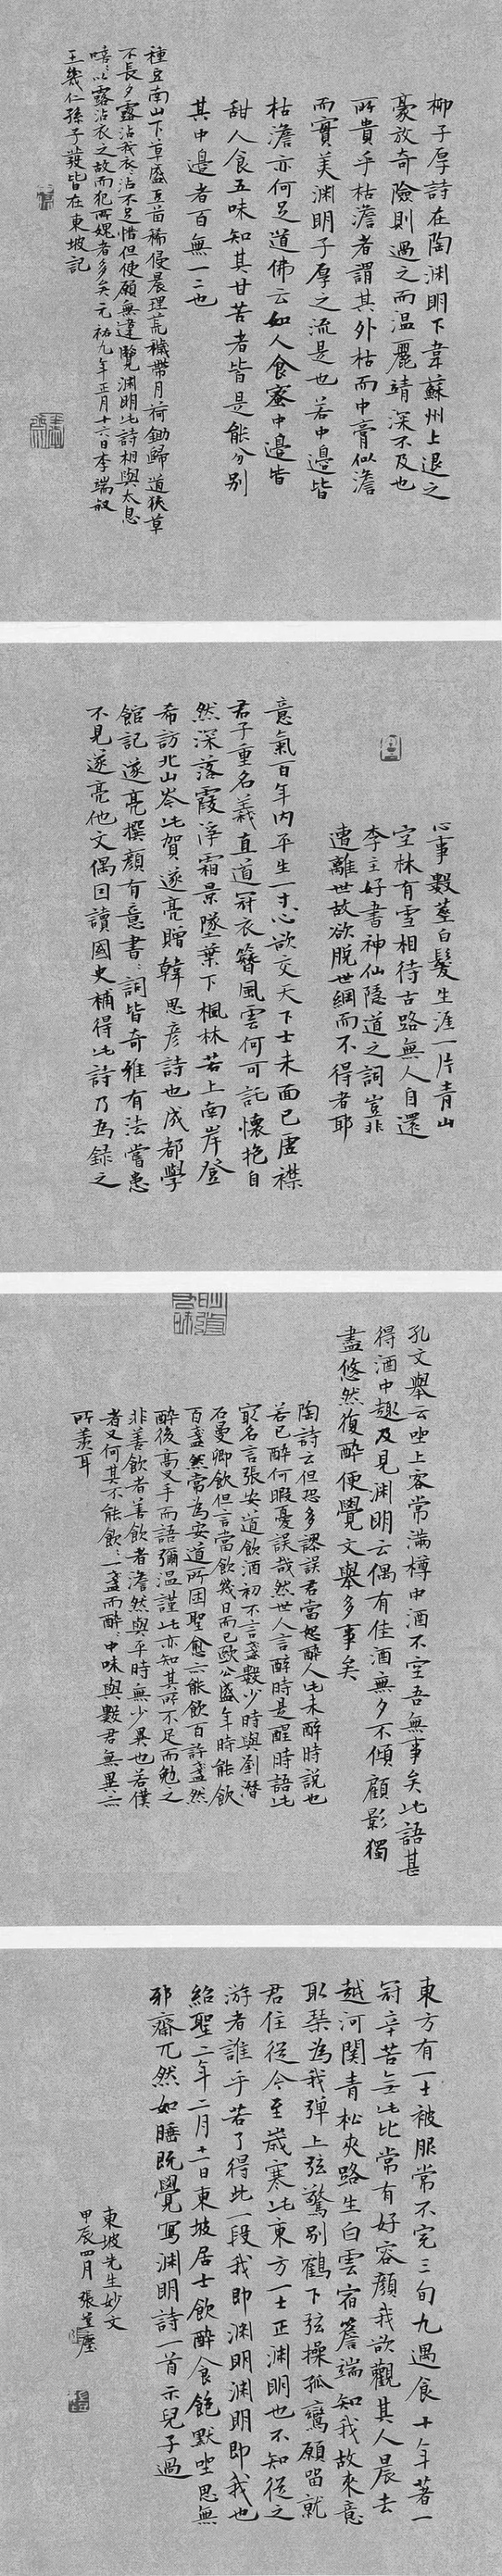 柳子厚詩在陶渊明下韋蘇州上退之
豪放奇險則過之而温麗靖深不及也
所貴乎枯澹者謂其外枯而中膏似澹
而實美渊明子厚之流是也若中邊皆
枯澹亦何足道佛云如人食蜜中邊皆
甜人食五味知其甘苦者皆是能分别
其中邊者百無一二也
種豆南山下草盛豆苗稀侵晨理荒穢帶月荷鋤歸道狹草
木長夕露沾我衣衣沾不足惜但使願無違覽渊明此詩相與太息
嘻嘻以露沾衣之故而犯所媿者多矣元祐九年正月十六日李端叔
王幾仁孫子發皆在東坡記
心事數莖白髮生涯一片青山
空林有雪相待古路無人自還
李主好書神仙隱道之詞豈非
遭離世故欲脱世綱而不得者耶
意氣百年内平生一寸心欲交天下士未面已虚襟
君子重名義直道冠衣簪風雲何可託懷抱自
然深落霞淨霜景墜葉下楓林若上南岸登
希訪北山岑此賀遂亮贈韓思彦詩也成都學
館記遂亮撰顔有意書書詞皆奇雅有法嘗患
不見遂亮他文偶因讀國史補得此詩乃為録之
孔文舉云坐上客常滿樽中酒不空吾無事矣此語甚
得酒中趣及見渊明云偶有佳酒無夕不傾顧影獨
盡悠然復醉便覺文舉多事矣
陶詩云但恐多謬誤君當恕醉人此未醉時説也
若已醉何暇憂誤哉然世人言醉時是醒時語此
最名言張安道飲酒初不言盞數少時與劉潛
石曼卿飲但言當飲幾日而已歐公盛年時能飲
百盞然常為安道所困聖俞亦能飲百許盞然
醉後高叉手而語彌温謹此亦知其所不足而勉之
非善飲者善飲者澹然與平時無少異也若僕
者又何其不能飲飲一盞而醉醉中味與數君無異亦
所羨耳
東方有一士被服常不完三旬九遇食十年著一
冠辛苦無此比常有好容顔我欲觀其人晨去
越河関青松夾路生白雲宿簷端知我故來意
取琴為我弹上弦驚别鶴下弦操孤鸞願留就
君住從今至歲寒此東方一士正渊明也不知從之
游者誰乎若了得此一段我即渊明渊明即我也
紹聖二年二月十一日東坡居士飲醉食飽默坐思無
邪齋兀然如睡既覺寫渊明詩一首示兒子過
東坡先生妙文
甲辰四月張